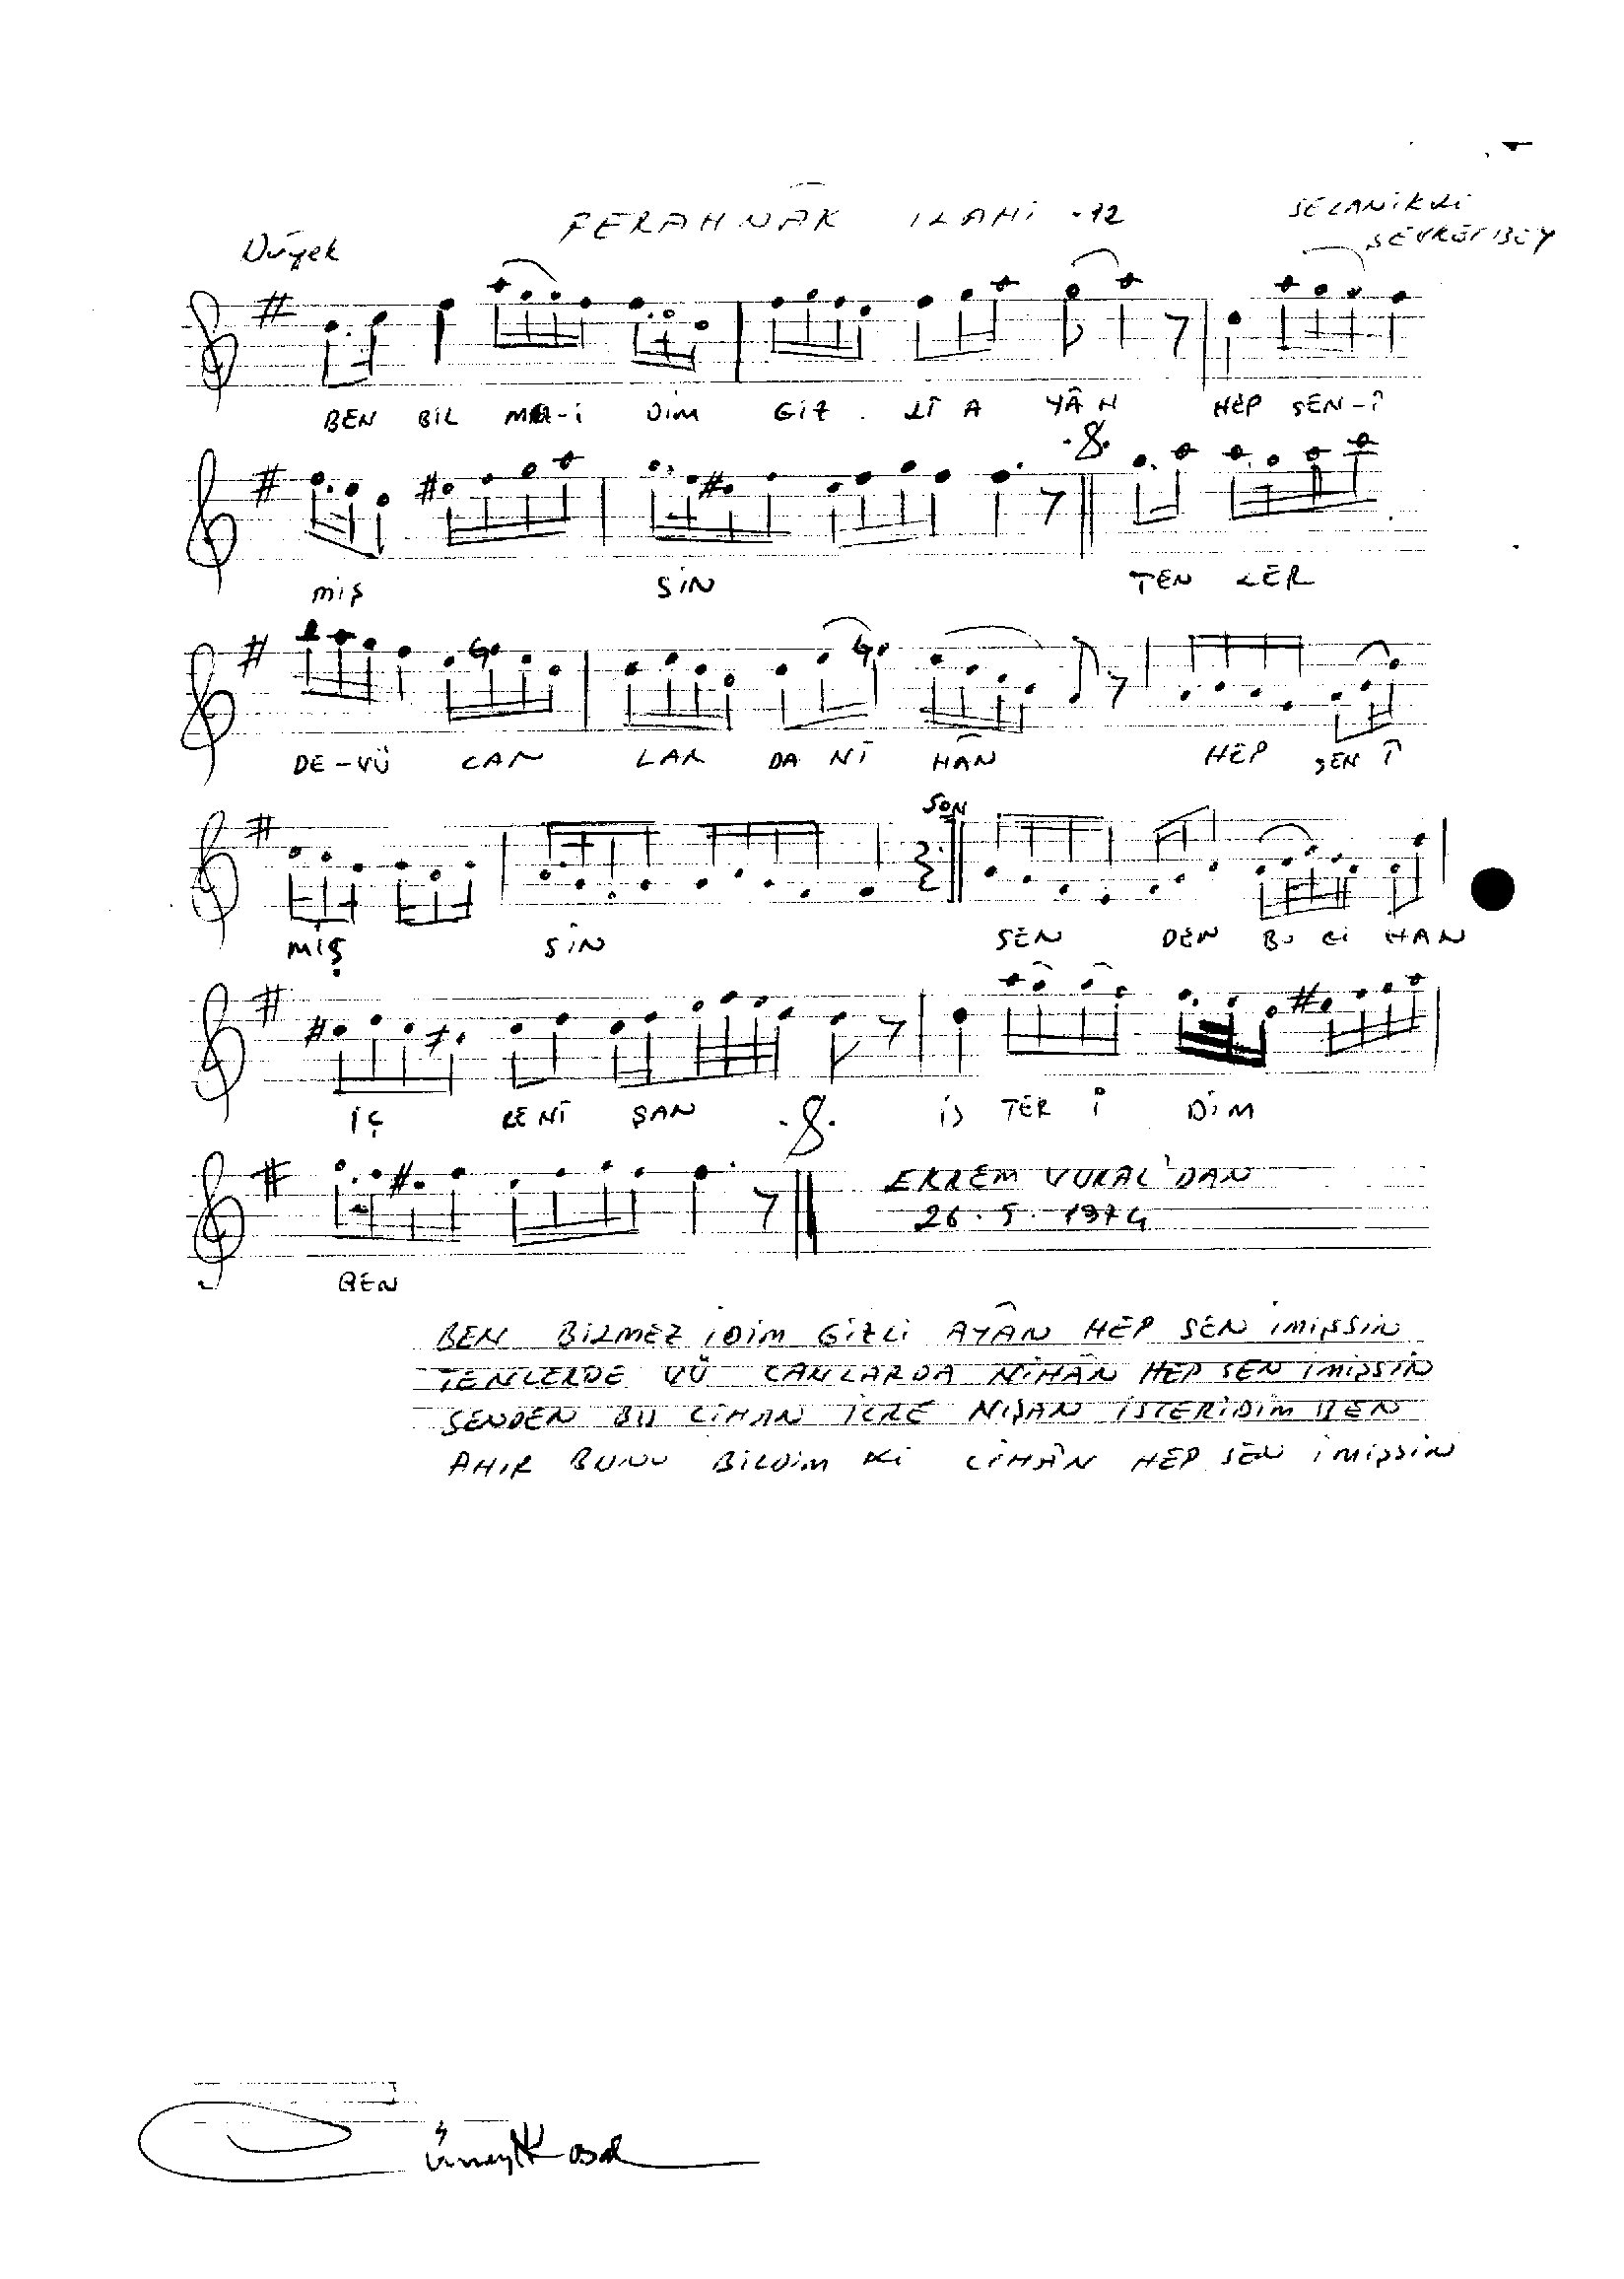 FERAHNÂK ILAHİ -12
SELANİKLİ
Düyek
BEN BİL ME-İ DİM GİZ . Lİ A YÂN HEP SEN-İ
MİŞ SİN TEN LER
DE-VÜ CAN LAR DA Nİ HÂN HEP SEN İ
SON
MİŞ SİN SEN DEN BU Cİ HAN
İÇ RE Nİ ŞAN İS TER İ DİM
EKREM VURAL'DAN
26.5.1974
BEN
BEN BİLMEZ İDİM GİZLİ AYÂN HEP SEN İMİŞSİN
TENLERDE VÜ CANLARDA NİHÂN HEP SEN İMİŞSİN
SENDEN BU CİHAN İÇRE NİŞAN İSTERİDİM BEN
AHIR BUNU BİLDİM Kİ CİHÂN HEP SEN İMİŞSİN